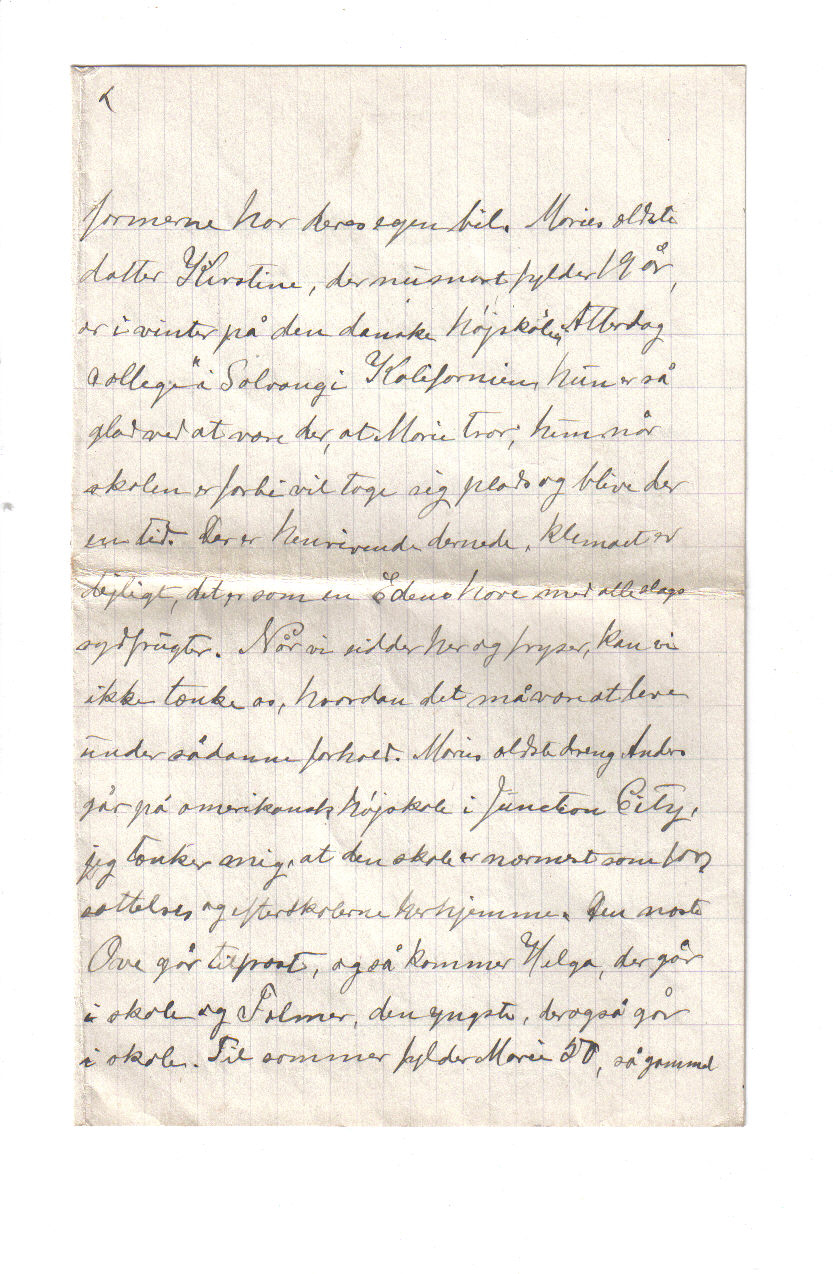 farmerne har deres egen bil. Maries ældste
datter Kirstine, der nu snart fylder 19 år,
er i vinter på den danske højskole „Atterdag
College" i Solvang i Kalifornien, hun er så
glad ved at være der, at Marie tror, hun, når
skolen er forbi vil tage sig plads og blive der
en tid. Der er henrivende dernede, klimaet er
dejligt, det er som en Edens have med alle slags
sydfrugter. Når vi sidder her og fryser, kan vi
ikke tænke os, hvordan det må være at leve
under sådanne forhold. Maries ældste dreng Anders
går på amerikansk højskole i Junction City,
jeg tænker mig, at den skole er nærmest som fort
sættelses og efterskolerne herhjemme. Den næste
Ove går til præst, og så kommer Helga, der går
i skole og Folmer, den yngste, der også går
i skole. Til sommer fylder Marie 50, så gammel